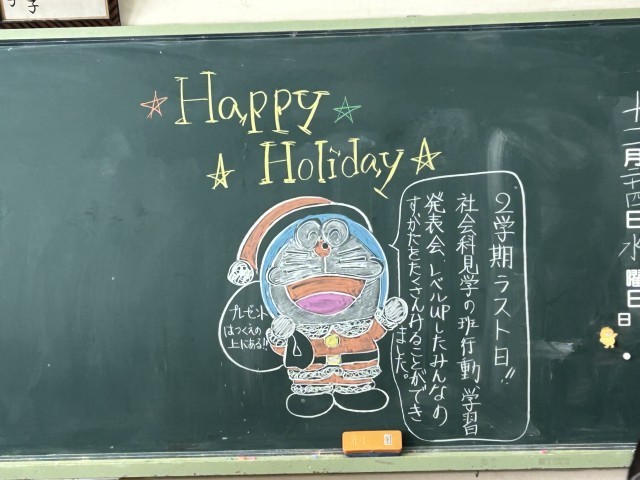 Happy
Holiday
十二月二十四日水曜日
日
2学期ラスト日!!
社会科見学の班行動、学習
発表会、レベルupしたみんなの
すがたをたくさんみることができ
ました。
プレゼント
はつくえの
上にある!!